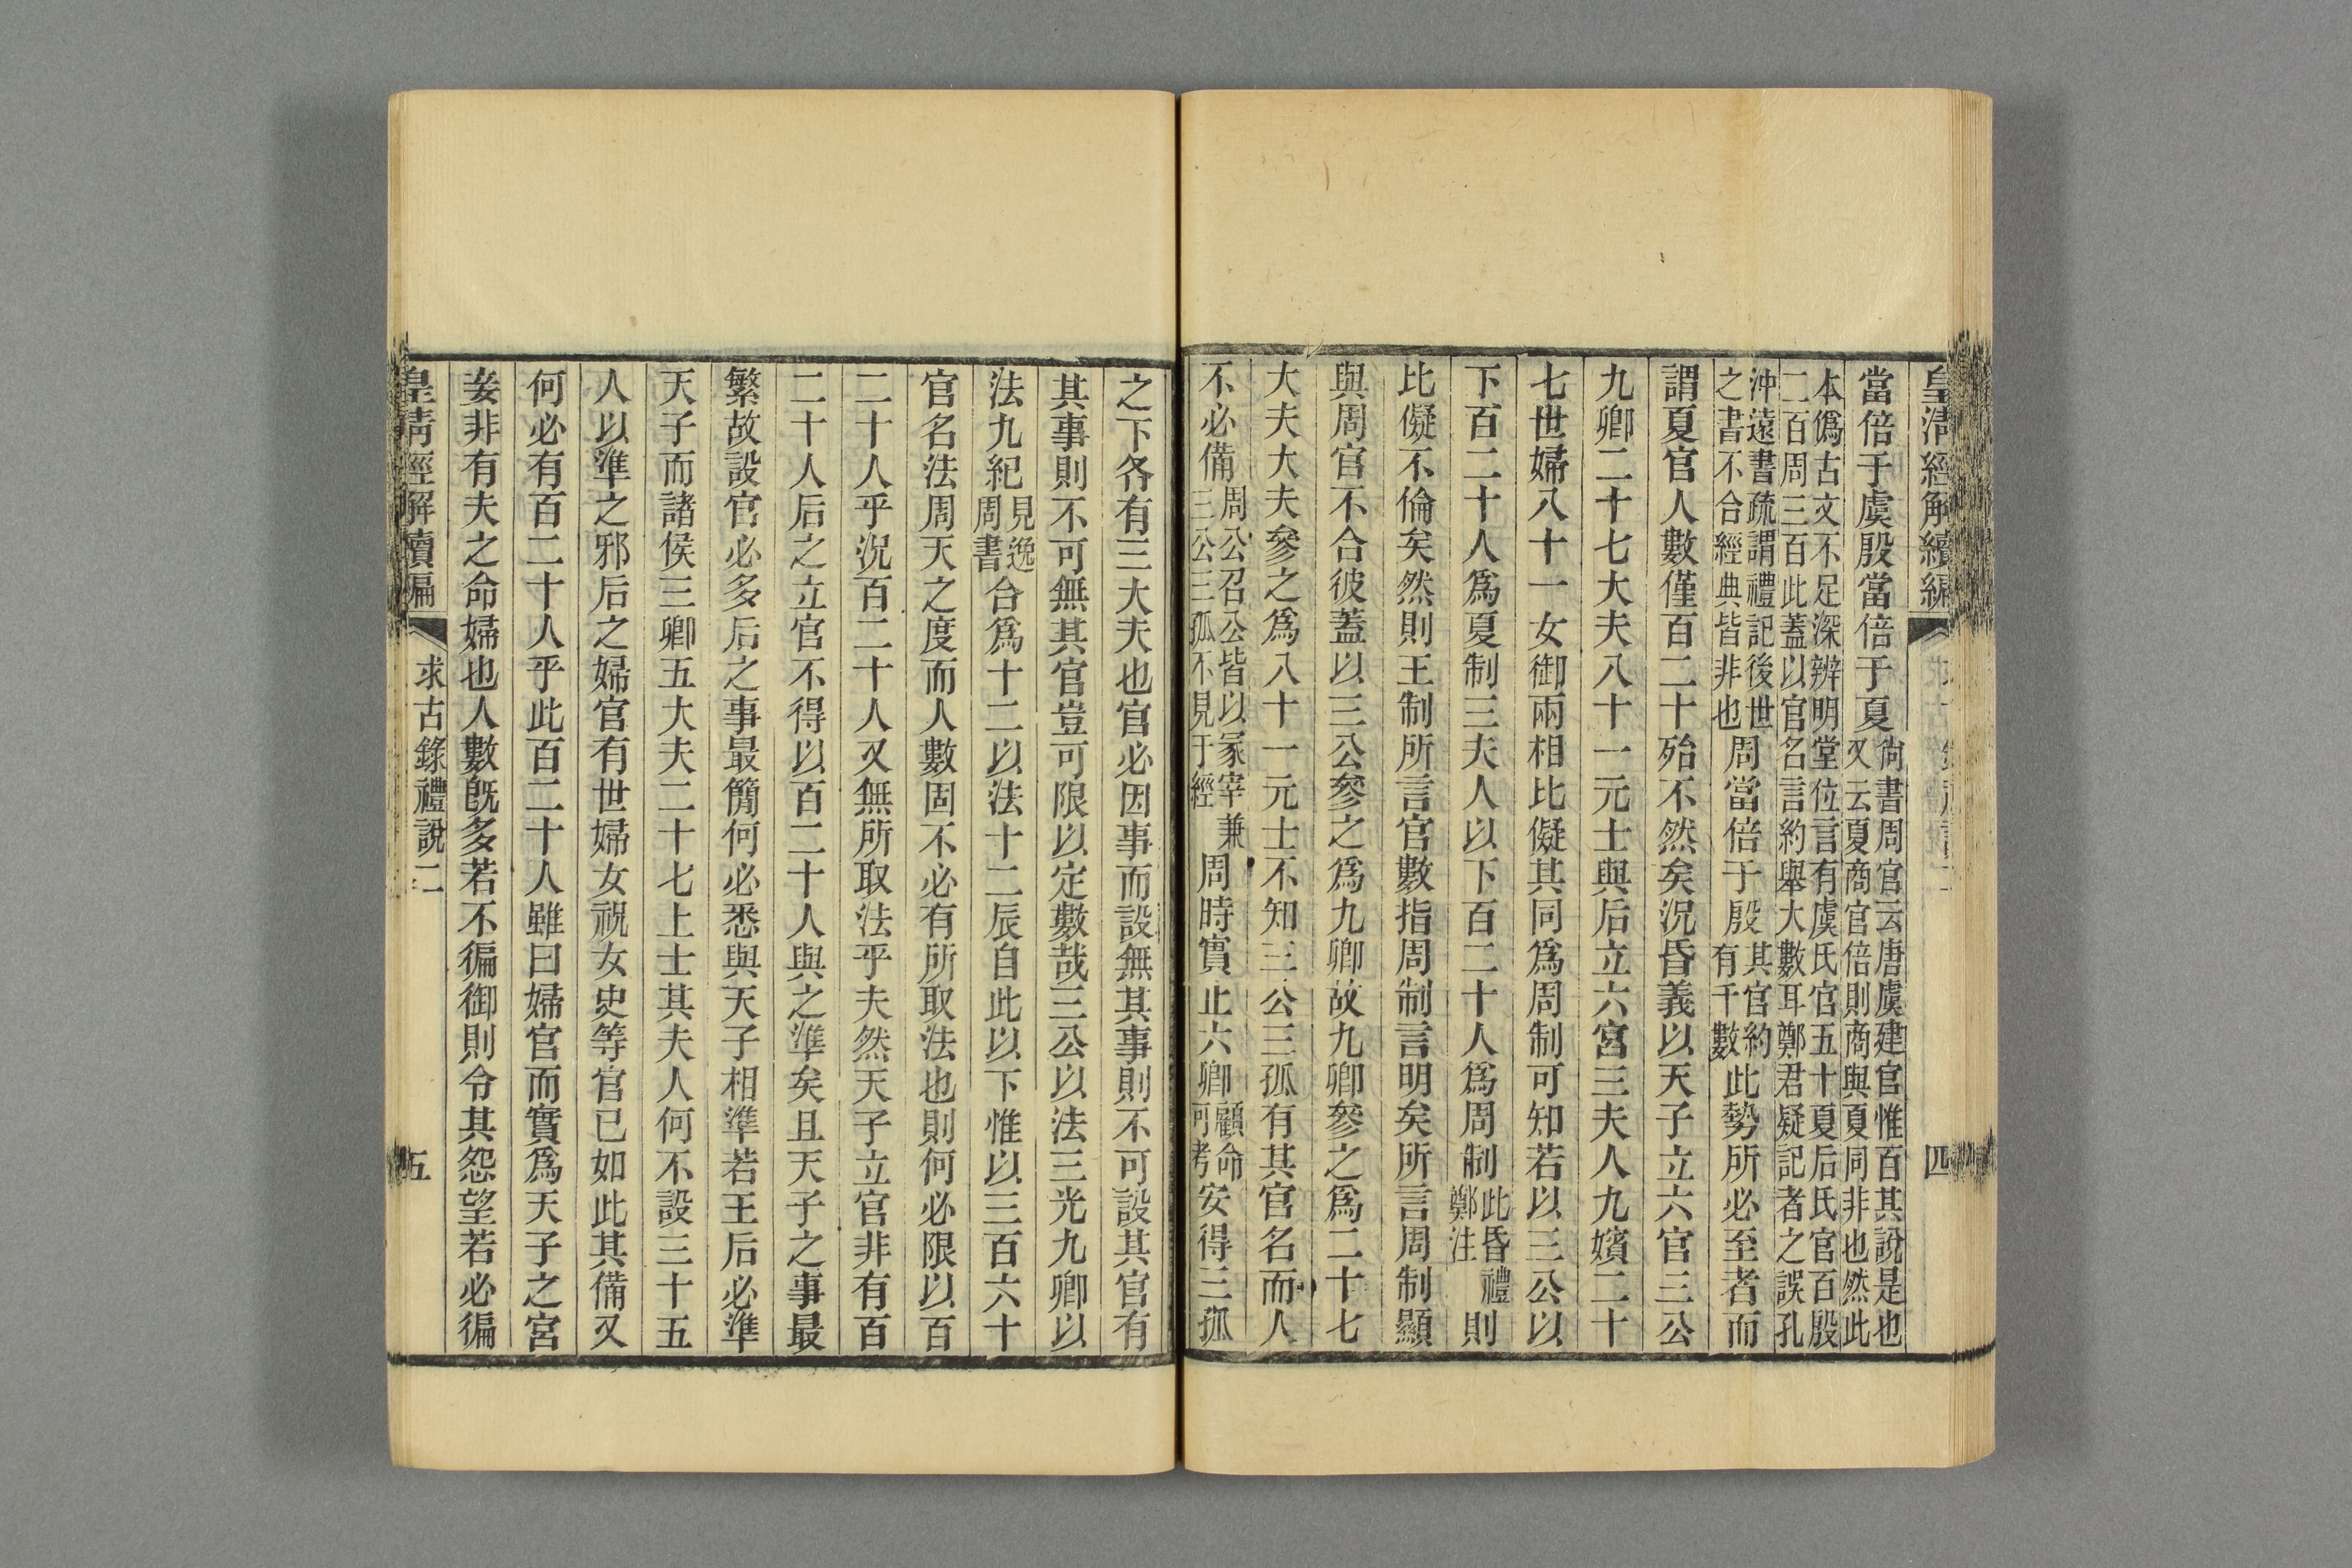 皇清經解續編 四
當倍于虞殷當倍于夏尙書周官云唐虞建官惟百其說是也又云夏商官倍則商與夏同非也然此
本僞古文不足深辨明堂位言有虞氏官五十夏后氏官百殷二百周三百此蓋以官名言約舉大數耳鄭君疑記者之誤孔
沖遠書疏謂禮記後世之書不合經典皆非也周當倍于殷其官約有千數此勢所必至者而
謂夏官人數僅百二十殆不然矣況昏義以天子立六官三公
九卿二十七大夫八十一元士與后立六宮三夫人九嬪二十
七世婦八十一女御兩相比儗其同爲周制可知若以三公以
下百二十人爲夏制三夫人以下百二十人爲周制此昏禮鄭注則
比儗不倫矣然則王制所言官數指周制言明矣所言周制顯
與周官不合彼蓋以三公參之爲九卿故九卿參之爲二十七
大夫大夫參之爲八十一元士不知三公三孤有其官名而人
不必備周公召公皆以冢宰兼三公三孤不見于經周時實止六卿顧命可考安得三孤
之下各有三大夫也官必因事而設無其事則不可設其官有
其事則不可無其官豈可限以定數哉三公以法三光九卿以
法九紀見逸周書合爲十二以法十二辰自此以下惟以三百六十
官名法周天之度而人數固不必有所取法也則何必限以百
二十人乎況百二十人又無所取法乎夫然天子立官非有百
二十人后之立官不得以百二十人與之準矣且天子之事最
繁故設官必多后之事最簡何必悉與天子相準若王后必準
天子而諸侯三卿五大夫二十七上士其夫人何不設三十五
人以準之邪后之婦官有世婦女祝女史等官已如此其備又
何必有百二十人乎此百二十人雖曰婦官而實爲天子之宮
妾非有夫之命婦也人數旣多若不徧御則令其怨望若必徧
皇清經解續編 求古錄禮說二 五